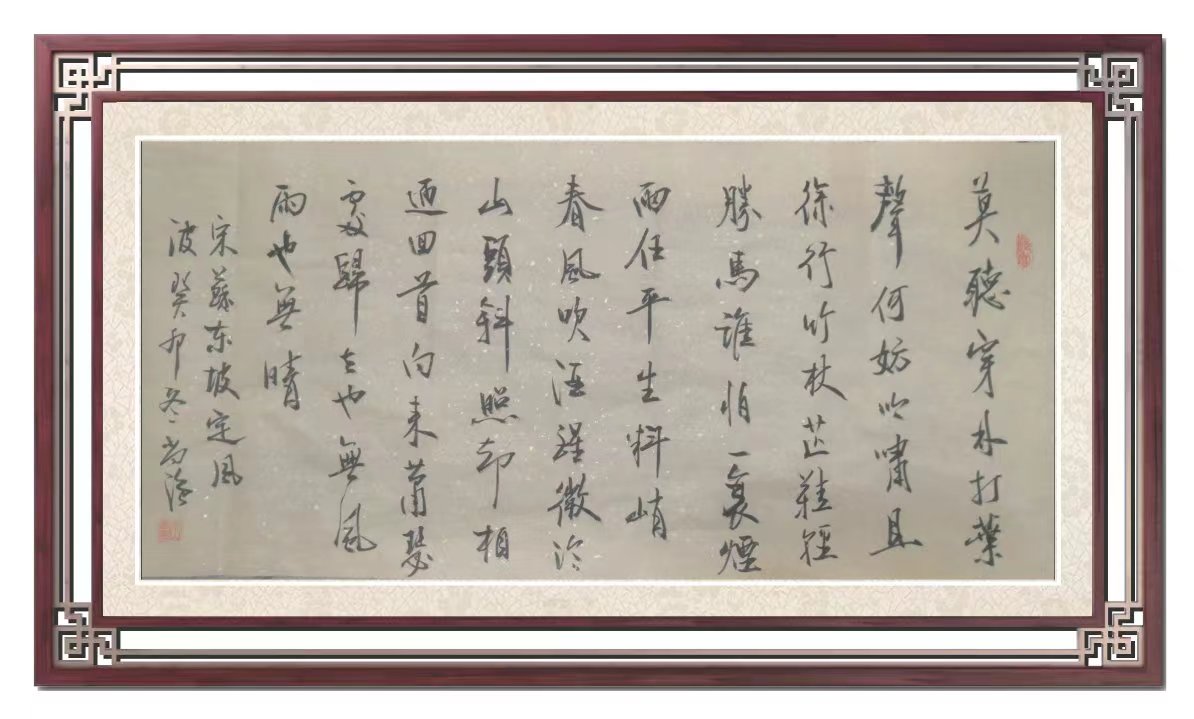 莫聽穿林打葉
聲何妨吟嘯且
徐行竹杖芒鞋輕
勝馬誰怕一蓑煙
雨任平生料峭
春風吹酒醒微冷
山頭斜照却相
迎回首向来蕭瑟
處歸去也無風
雨也無晴
宋蘇东坡定風
波癸卯冬尚